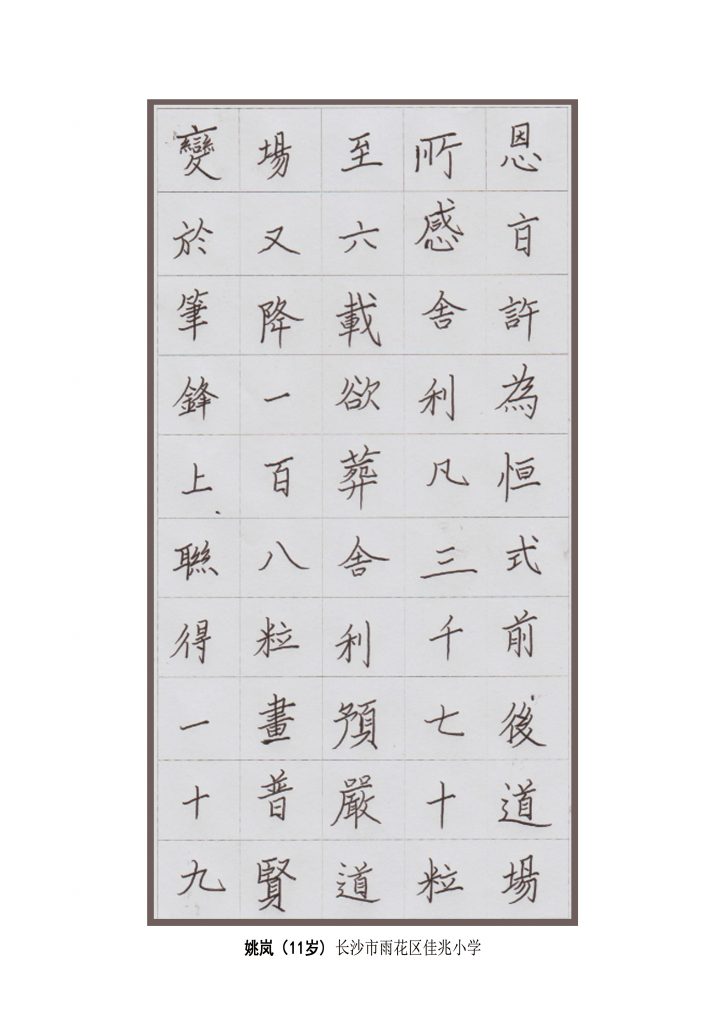 恩旨許為恒式前後道場
所感舍利凡三千七十粒
至六載欲葬舍利預嚴道
場又降一百八粒畫普賢
變於筆鋒上聯得一十九
姚岚（11岁）长沙市雨花区佳兆小学